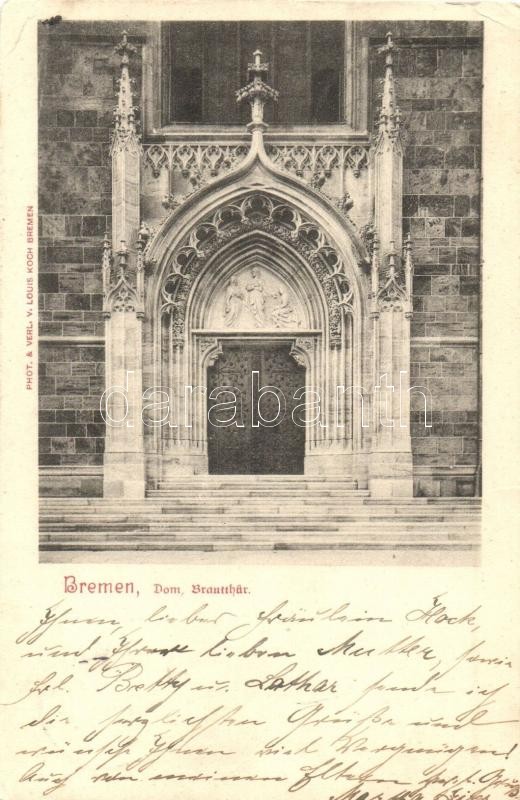 PHOT. & VERL. V. LOUIS KOCH BREMEN
darabanth
Bremen, Dom, Brautthür.
Ihnen, liebes Fräulein Hock,
und Ihrer lieben Mutter, sowie
Frl. Betty u. Lothar sende ich
die herzlichsten Grüße und
wünsche Ihnen viel Vergnügen!
Auch von meinen Eltern